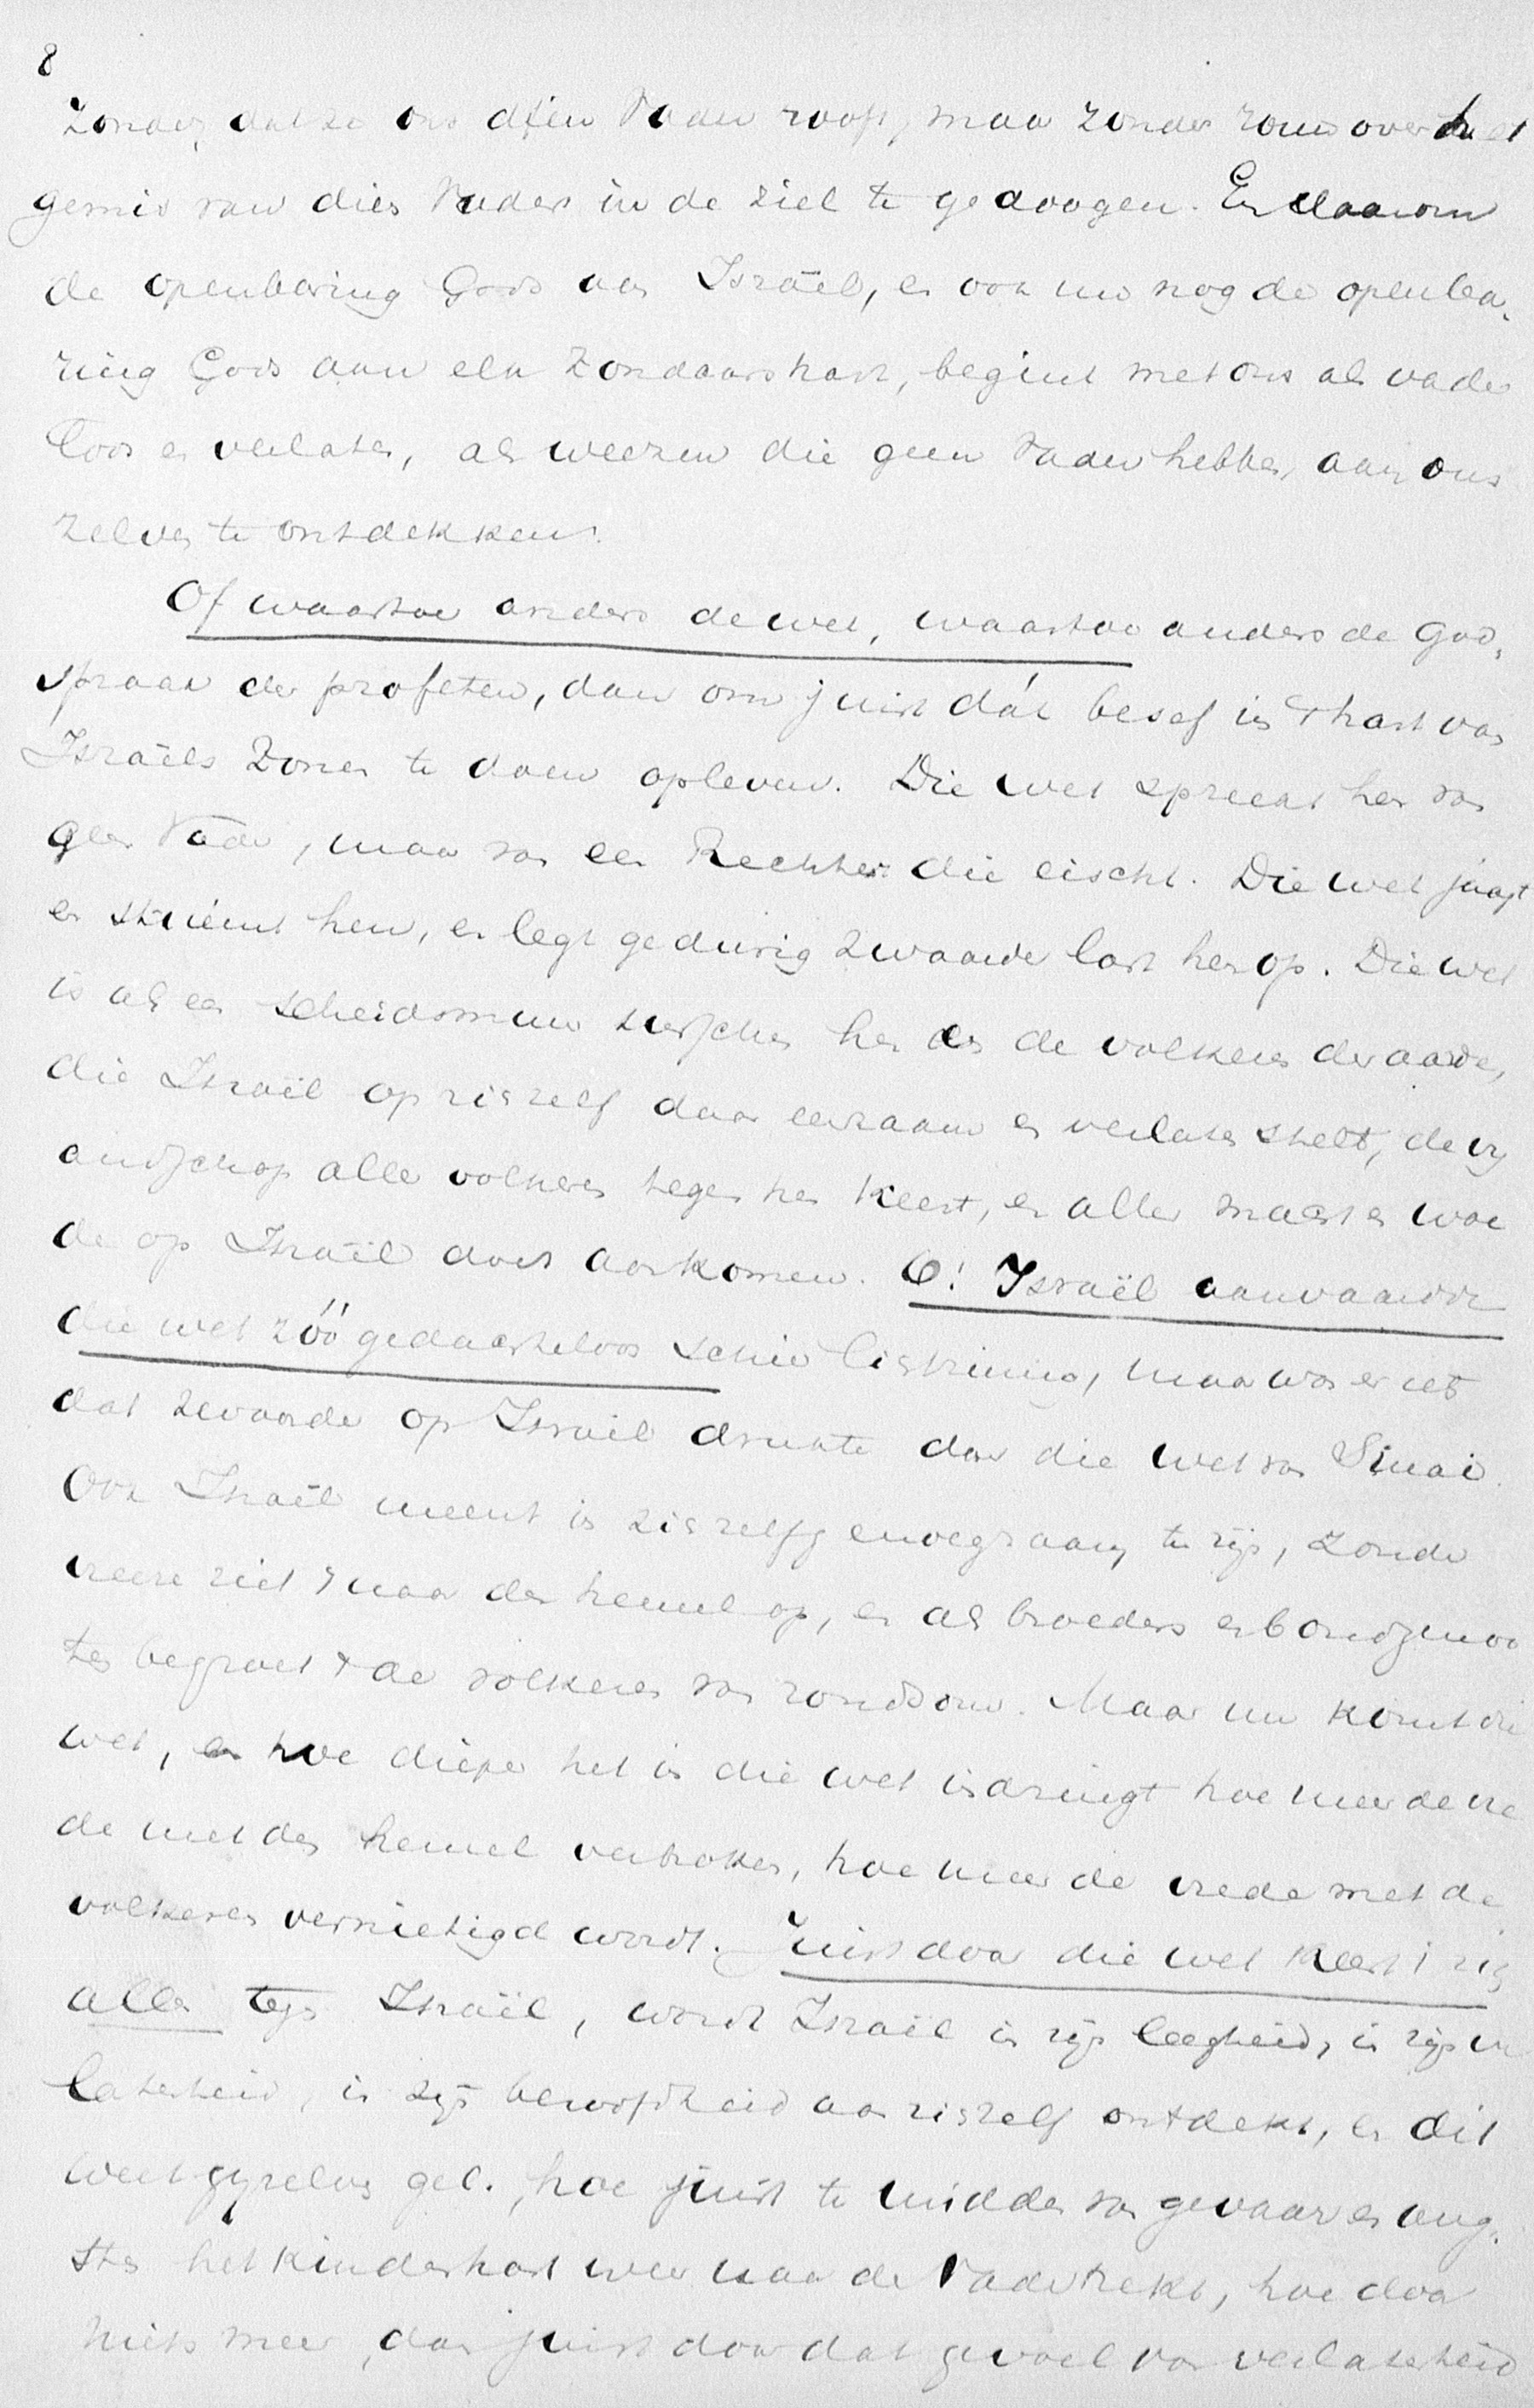 8
zonder dat ze ons dien Vader rooft, maar zonder rouw over het
gemis van dien Vader in de ziel te gedoogen. En daarom
de openbaring Gods aan Israël, en ook nu nog de openba-
ring Gods aan elk zondaarshart, begint met ons als vader
loos en verlaten, als weezen die geen Vader hebben, aan ons
zelven te ontdekken.
Of waartoe anders de wet, waartoe anders de God-
spraak der profeten, dan om juist dát besef in 't hart van
Israëls zonen te doen opleven. Die wet spreekt hen van
geen Vader, maar van een Rechter die eischt. Die wet jaagt
en striemt hen, en legt gedurig zwaarder last hen op. Die wet
is als een scheidsmuur tusschen hen en de volkeren der aarde,
die Israël op zichzelf daar eenzaam en verlaten stelt, de vij
andschap aller volkeren tegen hen keert, en aller macht en woe
de op Israël doet aankomen. O! Israël aanvaardde
die wet zóó gedachteloos schier lichtzinnig, maar was er iets
dat zwaarder op Israël drukte dan die wet van Sinai.
Ook Israël meent in zichzelf genoegzaam te zijn, zonder
vreeze ziet 't naar den hemel op, en als broeders en bondgenoo
ten begroet 't de volkeren van rondsom. Maar nu komt die
wet, en hoe dieper het in die wet indringt hoe meer de vre
de met den hemel verbroken, hoe meer de vrede met de
volkeren vernietigd wordt. Juist door die wet keert zich
alles tegen Israël, wordt Israël in zijn leegheid, in zijn ver
latenheid, in zijn beroofdheid aan zichzelf ontdekt, en dit
weet gij zelven gel. hoe juist te midden van gevaar en ang-
sten het kinderhart weer naar de Vader trekt, hoe door
niets meer, dan juist door dat gevoel van verlatenheid